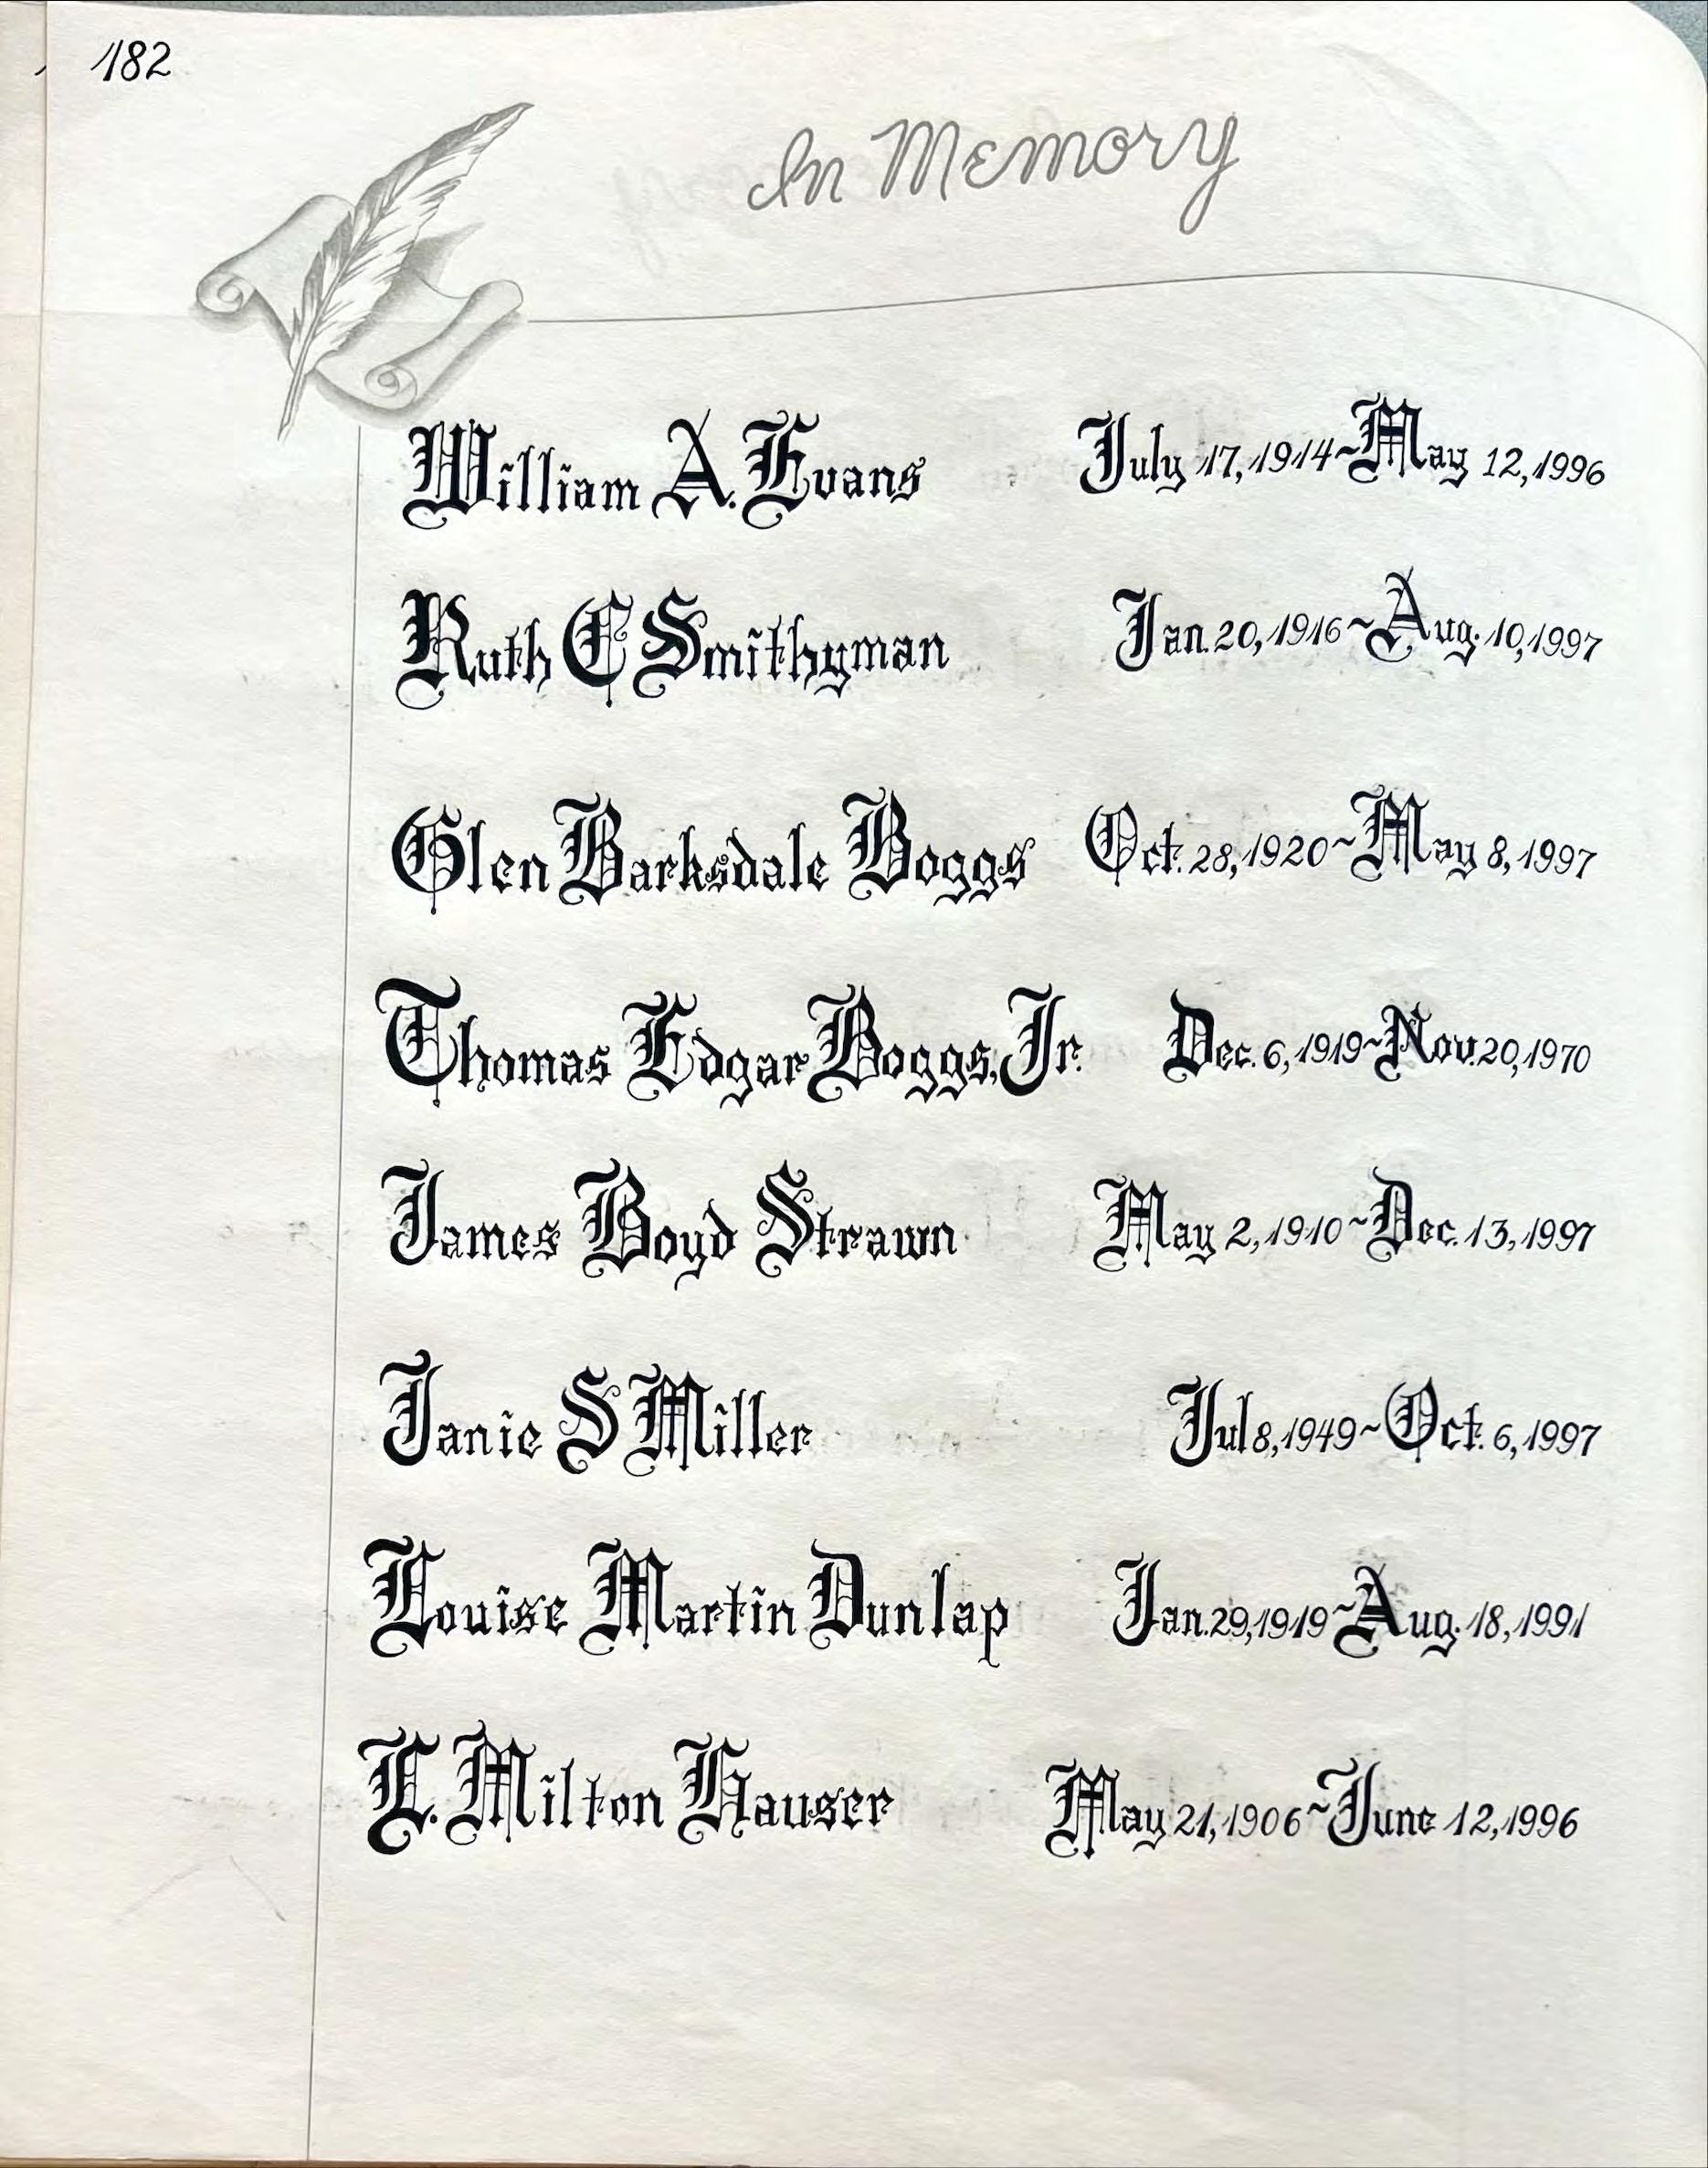 182
In Memory
William A. Evans July 17, 1914~May 12, 1996
Ruth C Smithyman Jan. 20, 1916~Aug. 10, 1997
Glen Barksdale Boggs Oct. 28, 1920~May 8, 1997
Thomas Edgar Boggs, Jr. Dec. 6, 1919~Nov. 20, 1970
James Boyd Strawn May 2, 1910~Dec. 13, 1997
Janie S Miller Jul 8, 1949~Oct. 6, 1997
Louise Martin Dunlap Jan. 29, 1919~Aug. 18, 1991
L. Milton Hauser May 21, 1906~June 12, 1996